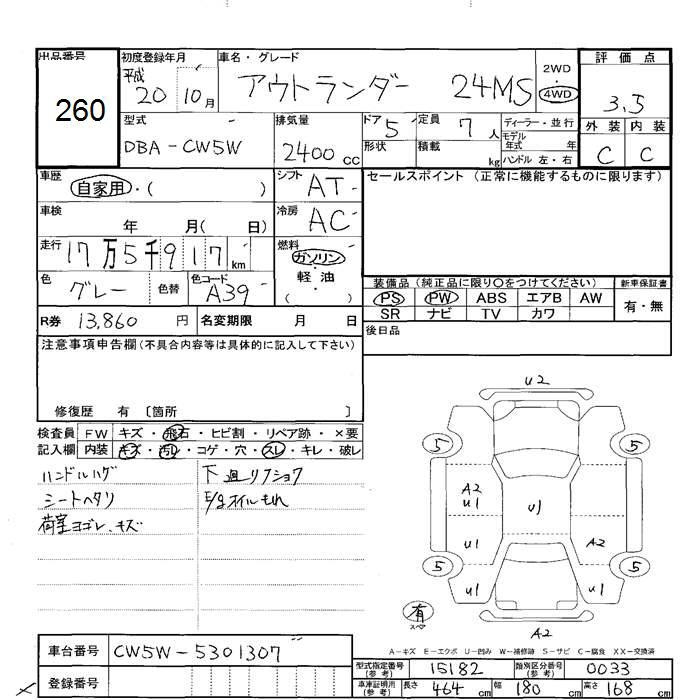 出品番号 初度登録年月 車名・グレード 評価点
260
平成 20 10月 アウトランダー 24MS 2WD・4WD 3.5
型式 排気量 ドア 5 定員 7人 ディーラー・並行 外装 内装
DBA-CW5W 2400cc 形状 積載 kg モデル年式 年 ハンドル 左・右 C C
車歴 自家用・( ) シフト AT セールスポイント(正常に機能するものに限ります)
車検 年 月( 日) 冷房 AC
走行 17万5千917km 燃料 ガソリン・軽油・( )
色 グレー 色替 色コード A39
装備品(純正品に限り○をつけてください) 新車保証書
PS PW ABS エアB AW 有・無
SR ナビ TV カワ
R券 13,860円 名変期限 月 日 後日品
注意事項申告欄(不具合内容等は具体的に記入して下さい)
修復歴 有〔箇所 〕
検査員 FW キズ・飛石・ヒビ割・リペア跡・×要
記入欄 内装 キズ・汚レ・コゲ・穴・スレ・キレ・破レ
ハンドルハゲ 下廻リフショク
シートヘタリ E/gオイルもれ
荷室ヨゴレ、キズ
U2
5 5
A2
U1 U1
U1 A2
5 5
U1 U1
有
スペア
A2
A-キズ E-エクボ U-凹み W-補修跡 S-サビ C-腐食 XX-交換済
車台番号 CW5W-5301307
型式指定番号(参考) 15182 類別区分番号(参考) 0033
登録番号
車庫証明用(参考) 長さ 464cm 幅 180cm 高さ 168cm